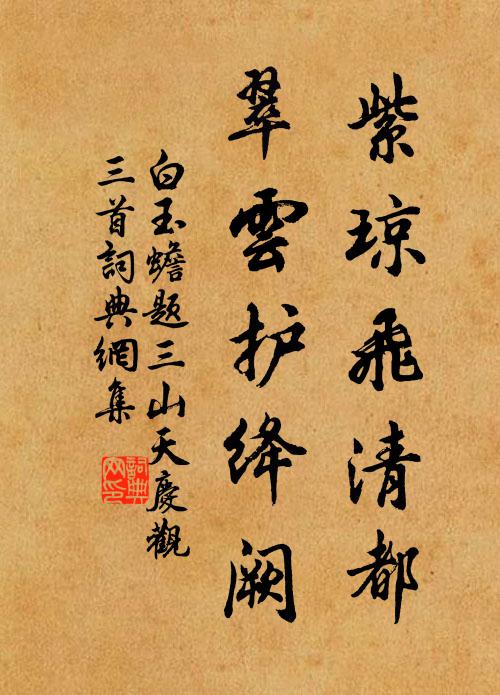 紫琼飛清都
翠雲护绛阙
白玉蟾题三山天慶觀
三首詞典網集
詞典网印